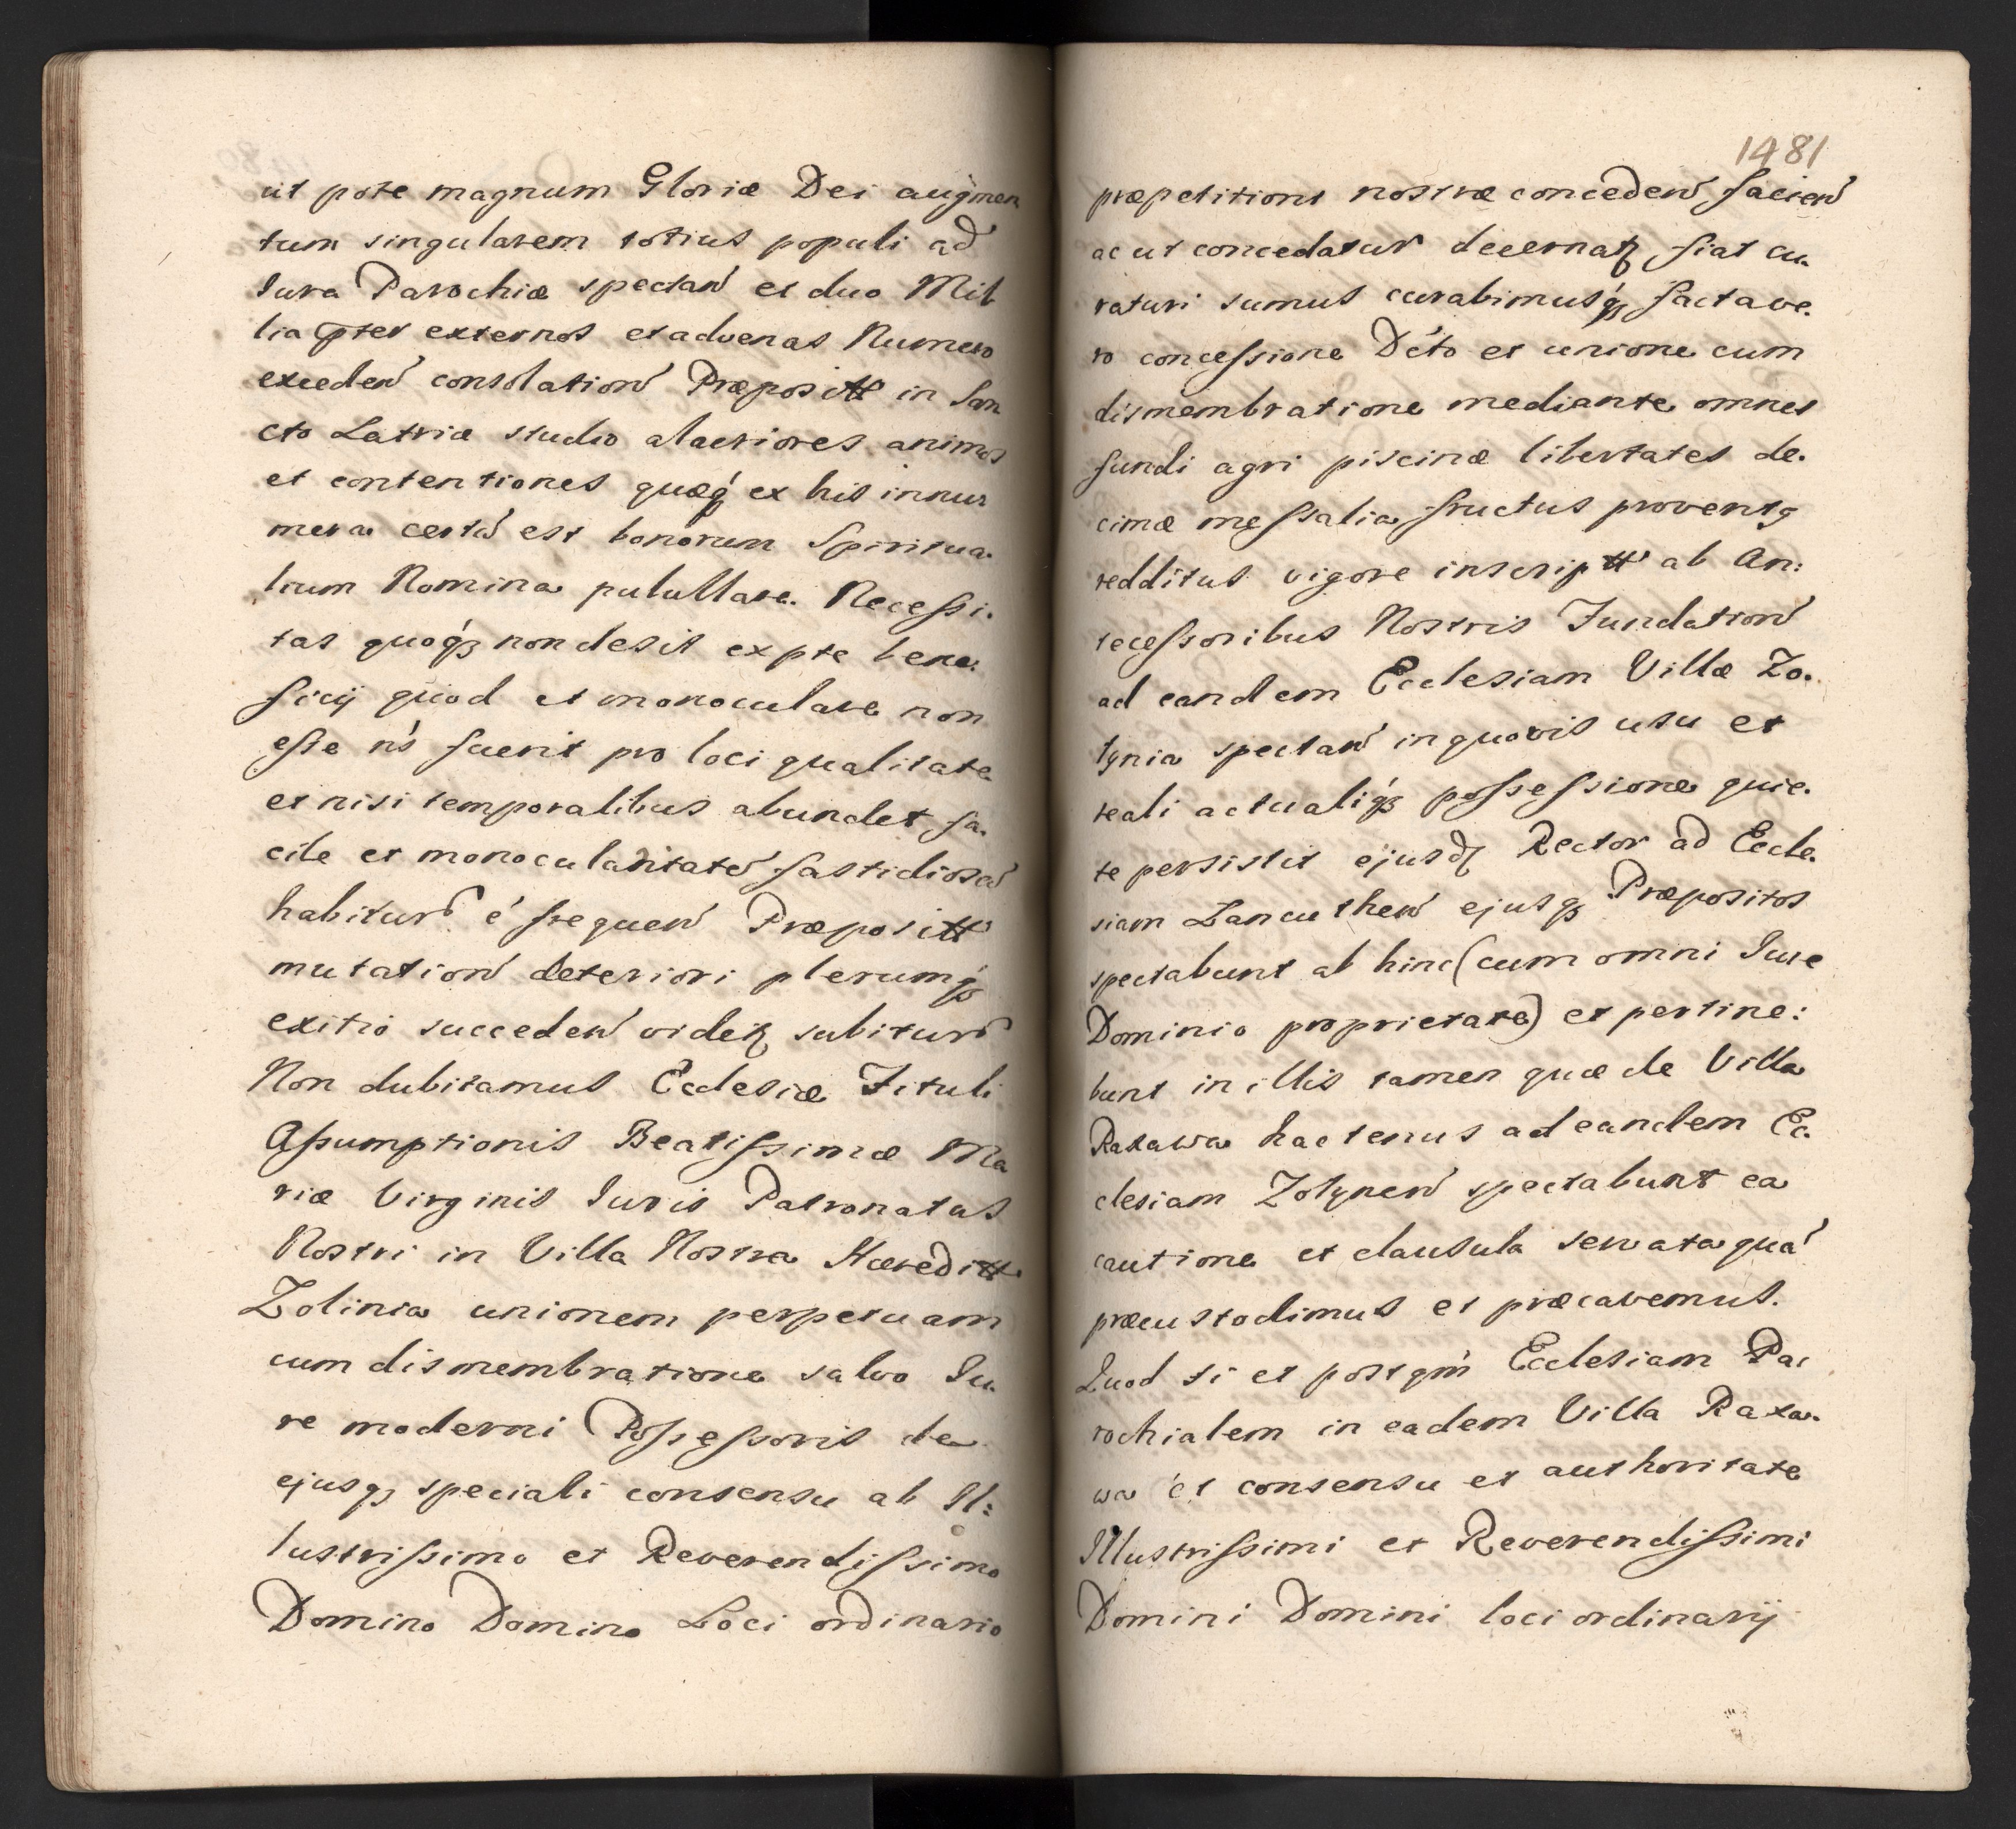 ut pote magnum Gloriæ Dei augmen
tum singularem totius populi ad
Jura Parochiæ spectan̄ et duo Mil
lia p̄ter externos et advenas Numero
exceden̄ consolation̄ Præposittt in San
cto Latriæ studio alacriores animos
et contentiones quæq́ ex his innu
mera certū est bonorum Spiritua
lium Nomina pulullare. Necessi.
tas quoq́ȝ non desit ex pte bene
ficij quod et monoculare non
esse ńs fuerit pro loci qualitate
et nisi temporalibus abundet fa.
cile et monocularitatē fastidiosā
habitur̄ é frequen̄ Præposittt
mutation̄ deteriori plerumq́ȝ
exitio succeden̄ videtȝ subitur̄
Non dubitamus Ecclesiæ Tituli
Assumptionis Beatissimæ Ma
riæ Virginis Juris Patronatus
Nostri in Villa Nostra Hæredittt
Zolinia unionem perpetuam
cum dismembratione salvo Ju
re moderni Possessoris de
ejusqȝ speciali consensu ab Il:
lustrissimo et Reverendissimo
Domino Domino Loci ordinario
1481
præpetitioni nostræ conceden̄ facien̄
ac ut concedatur decernatȝ fiat cu.
raturi sumus curabimusq́ȝ facta ve.
ro concessione Dćto et unione cum
dismembratione mediante omnes
fundi agri piscinæ libertates de.
cimæ messalia fructus proventȝ
redditus vigore inscripttt ab An:
tecessoribus Nostris Fundation̄
ad eandem Ecclesiam Villæ Zo.
lynia spectan̄ in quovis usu et
reali actualiq́ȝ possessione quie.
te persistit ejusdȝ Rector ad Eccle.
siam Lancuthen̄ ejusqȝ Præpositos
spectabunt ab hinc (cum omni Jure
Dominio proprietate) et pertine:
bunt in illis tamen quæ de Villa
Raxawa hactenus ad eandem Ec.
clesiam Zolynen̄ spectabunt ea
cautione et clausula servata quá
præcustodimus et præcavemus.
Quod si et postqm̄ Ecclesiam Pa
rochialem in eadem Villa Raxa.
wa ét consensu et authoritate
Illustrissimi et Reverendissimi
Domini Domini loci ordinarij